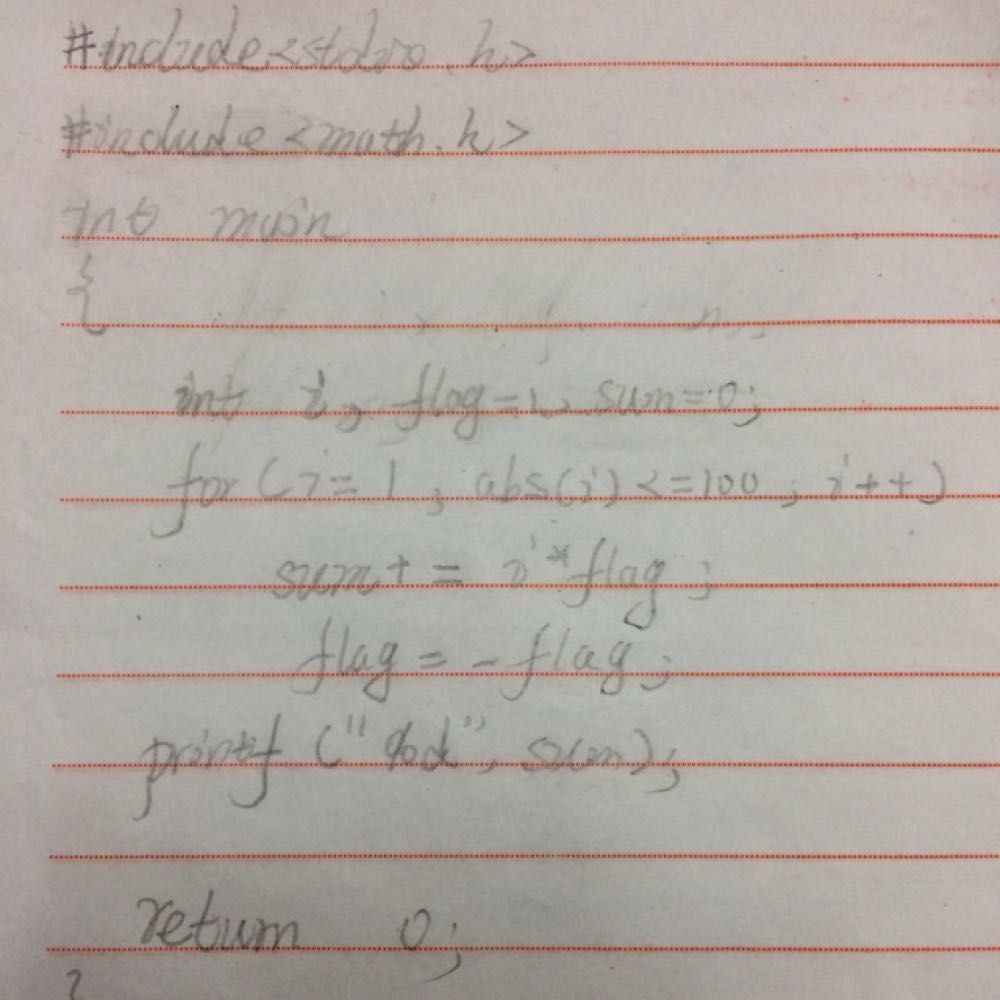 #include<stdio.h>
#include<math.h>
int main
{
int i, flag=1, sum=0;
for(i=1; abs(i)<=100; i++)
sum+=i*flag;
flag=-flag;
printf("%d", sum);
return 0;
}